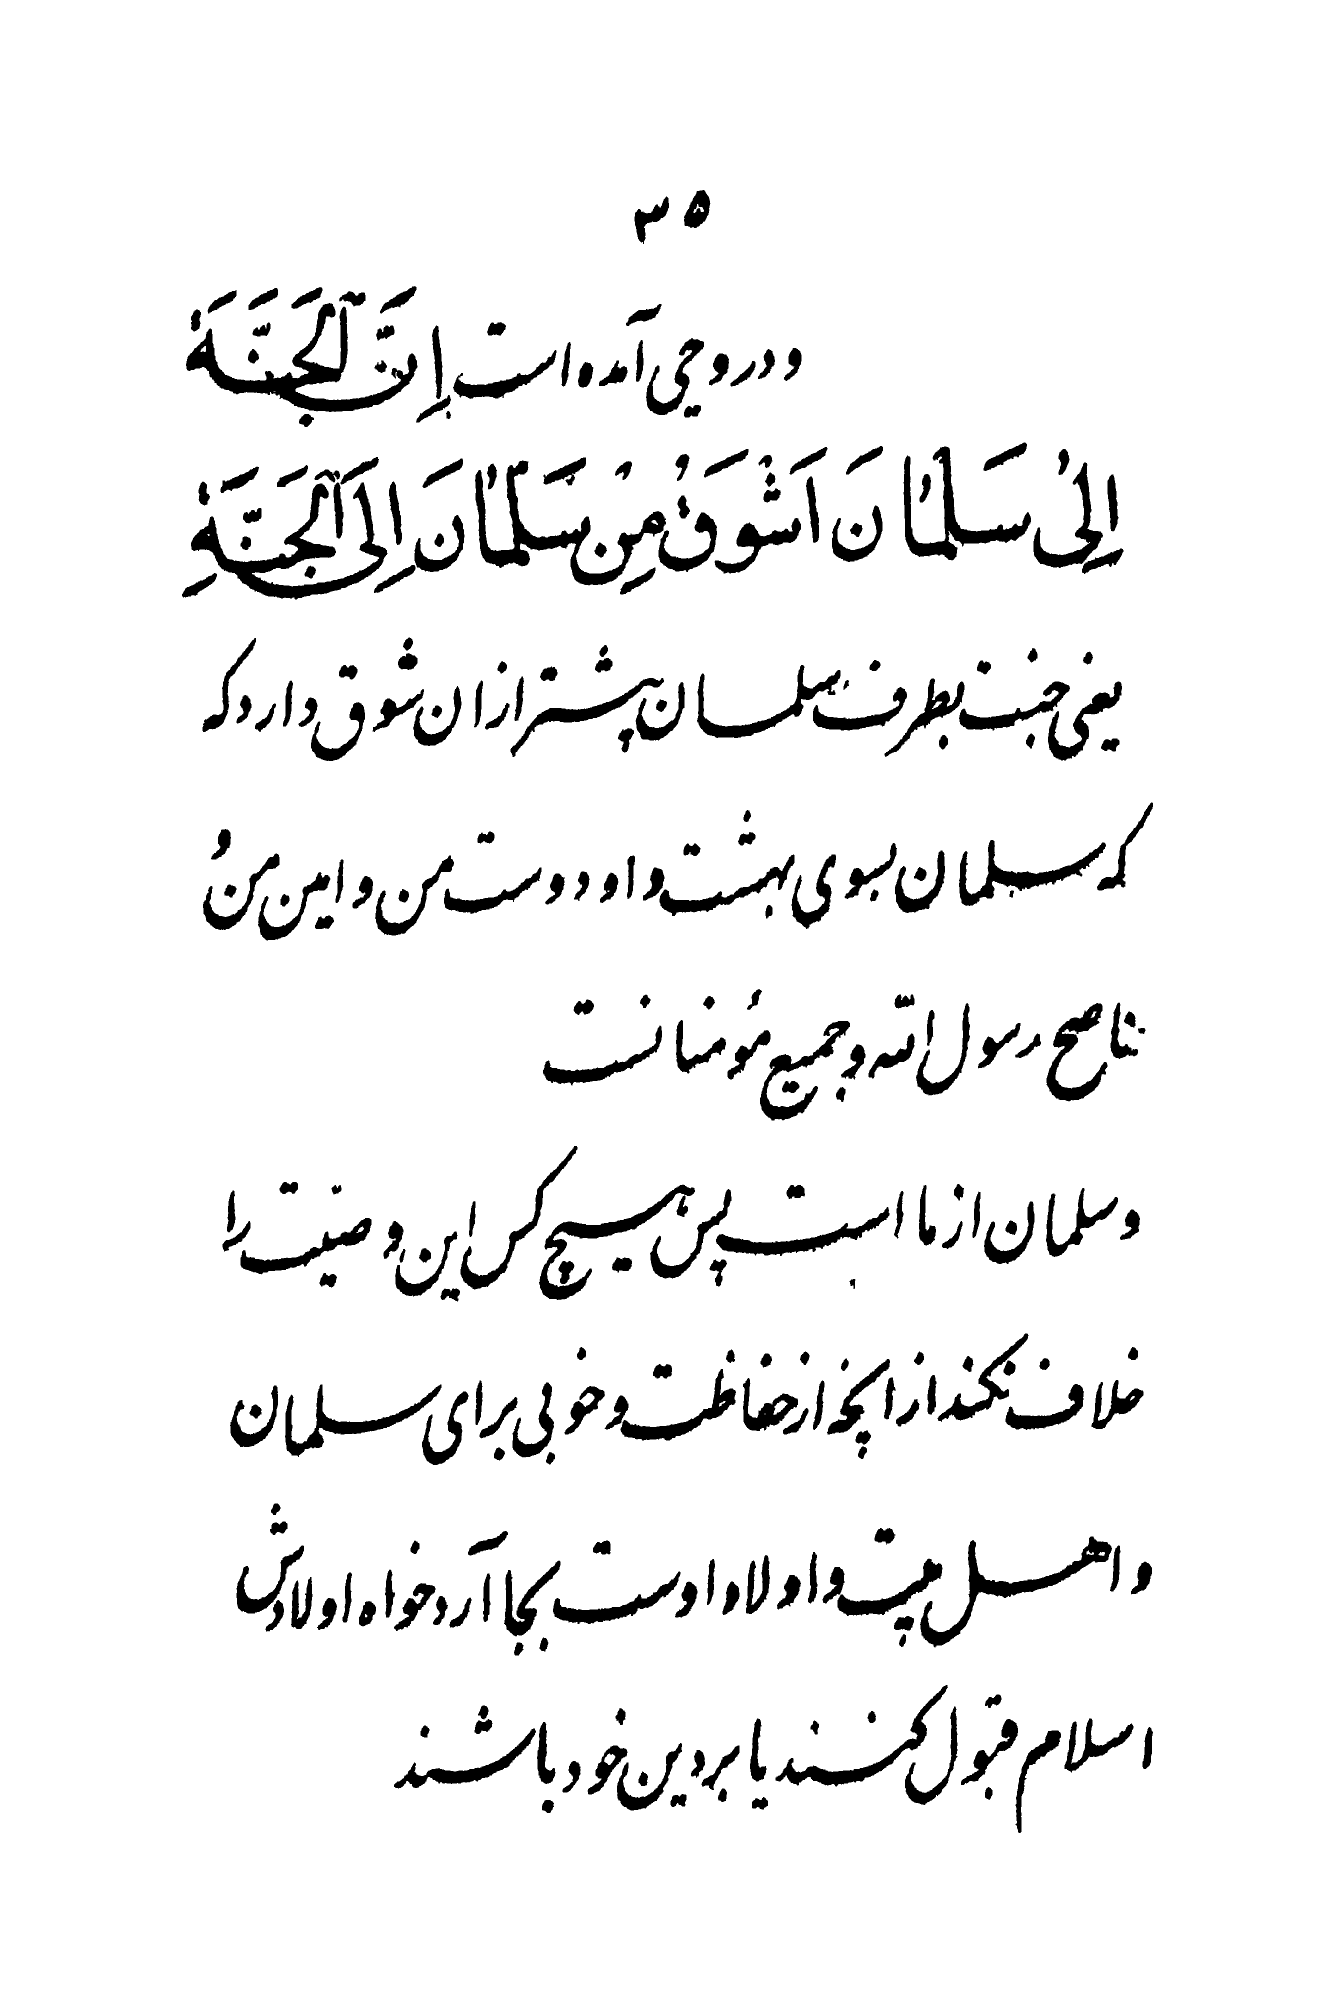 ۳۵
و در وحی آمده است إِنَّ الْجَنَّةَ
إِلىٰ سَلْمٰانَ اَشْوَقُ مِنْ سَلْمٰانَ إِلَى الْجَنَّةِ
یعنی جنت بطرف سلمان پیشتر از ان شوق دارد که
که سلمان بسوی بهشت و او دوست من و امین من و
ناصح رسول الله و جمیع مؤمنانست
و سلمان از ما است پس هیچ کس این وصیت را
خلاف نکند از انچه از حفاظت و خوبی برای سلمان
و اهل بیت و اولاد اوست بجا آرد خواه اولادش
اسلام قبول کنند یا بر دین خود باشند